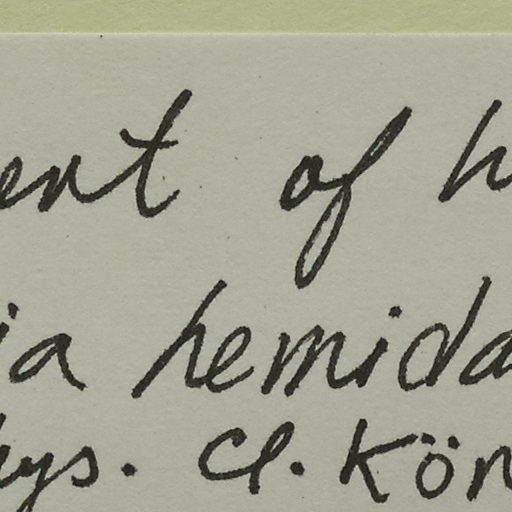 ent of h
ia hemida
hys. Cl. Kön